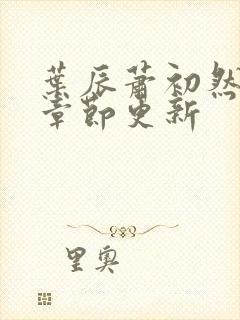 葉辰蕭初然
章節更新
里奧